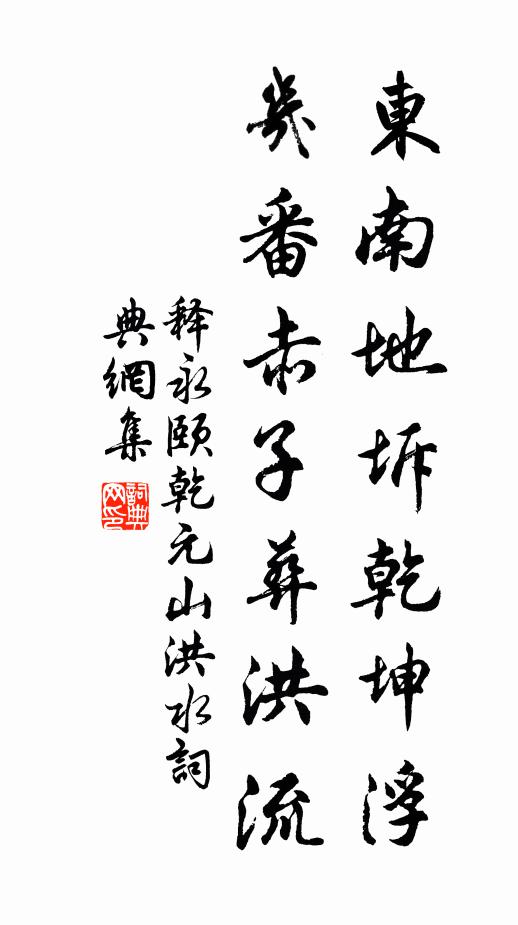 東南地坼乾坤浮
幾番赤子葬洪流
释永頤乾元山洪水詞
典網集
詞典網印